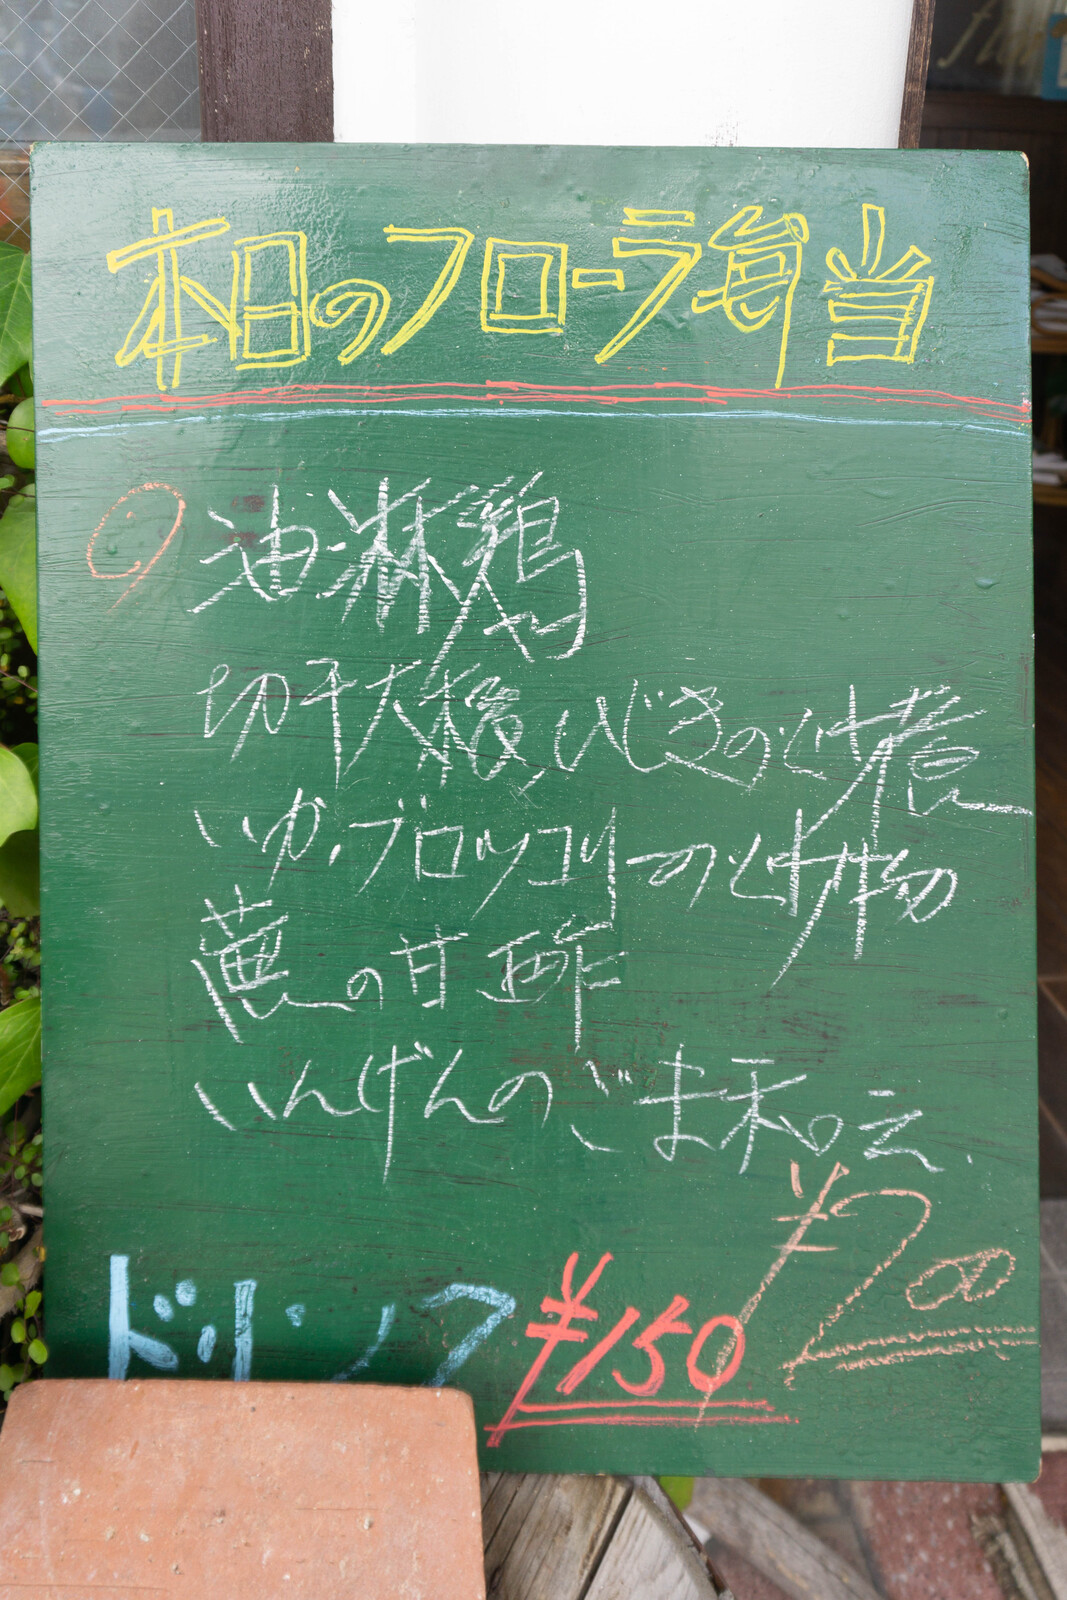 本日のフローラ弁当
油淋鶏
切干大根、ひじきの炒煮
いか、ブロッコリーの炒物
蕪の甘酢
いんげんのごま和え
¥700
ドリンク ¥150